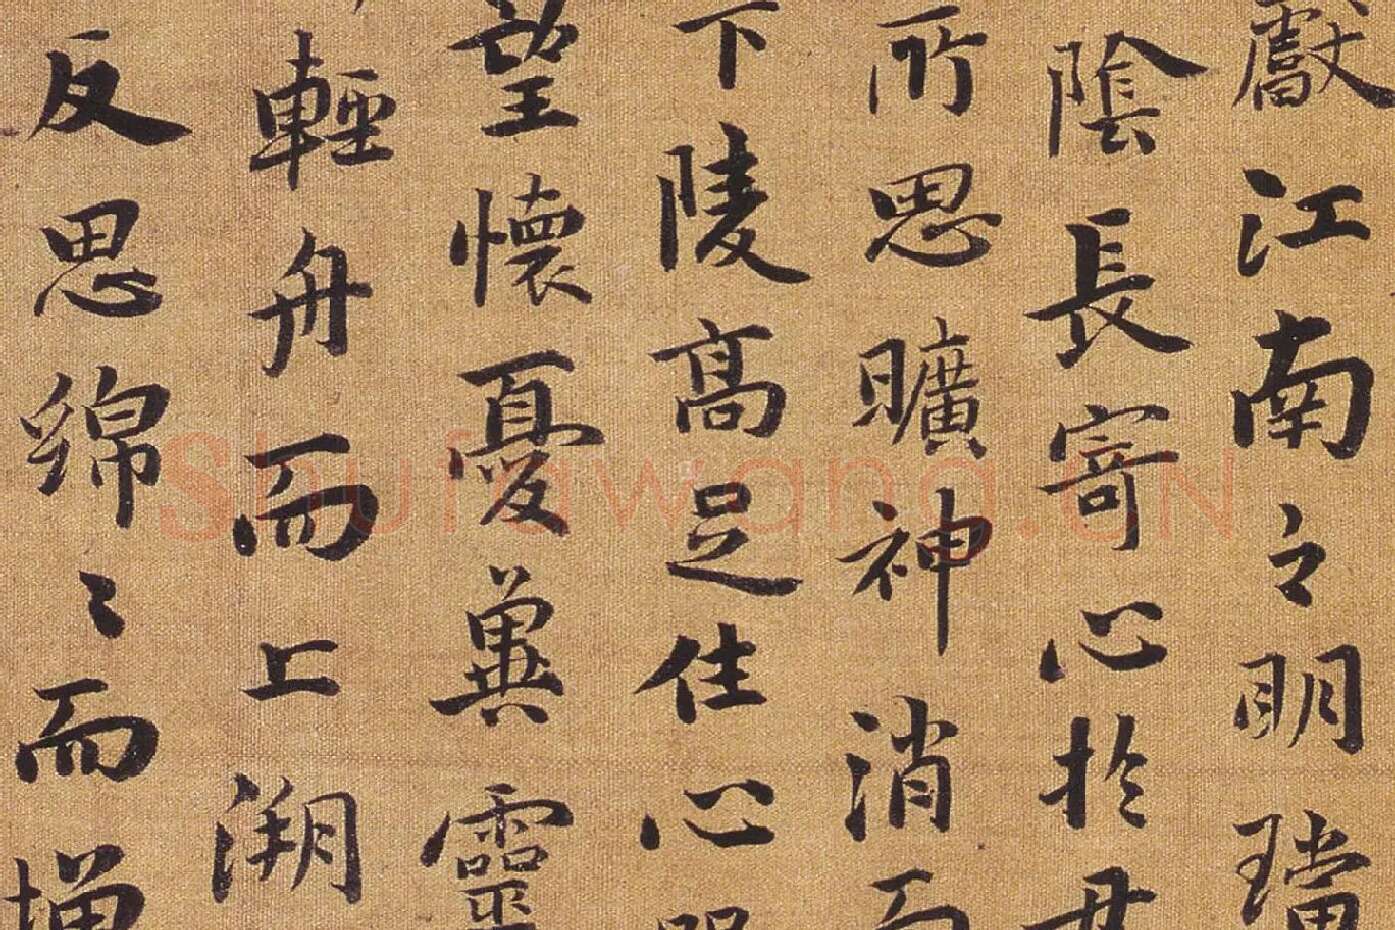 獻江南之明璫
陰長寄心於君
所思曠神消而
下陵高足往心
望懷憂冀靈
輕舟而上溯
反思綿〻而增
Shufawang.CN